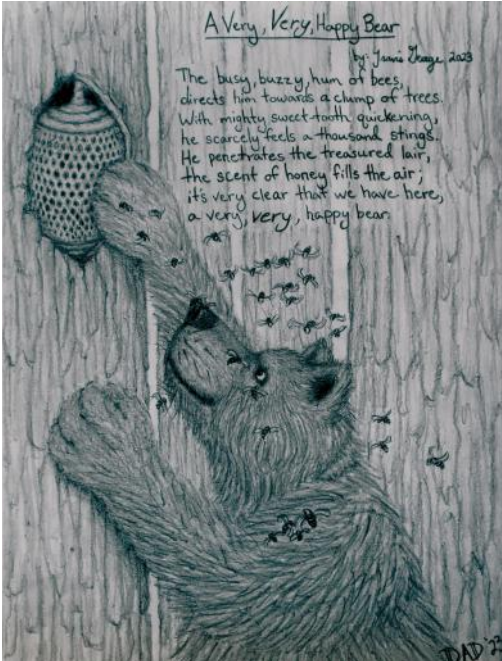 A Very, Very, Happy Bear
by: Travis Gleage 2023
The busy, buzzy, hum of bees,
directs him towards a clump of trees.
With mighty sweet-tooth quickening,
he scarcely feels a thousand stings.
He penetrates the treasured lair,
the scent of honey fills the air;
it's very clear that we have here,
a very, very, happy bear.
DAD '23